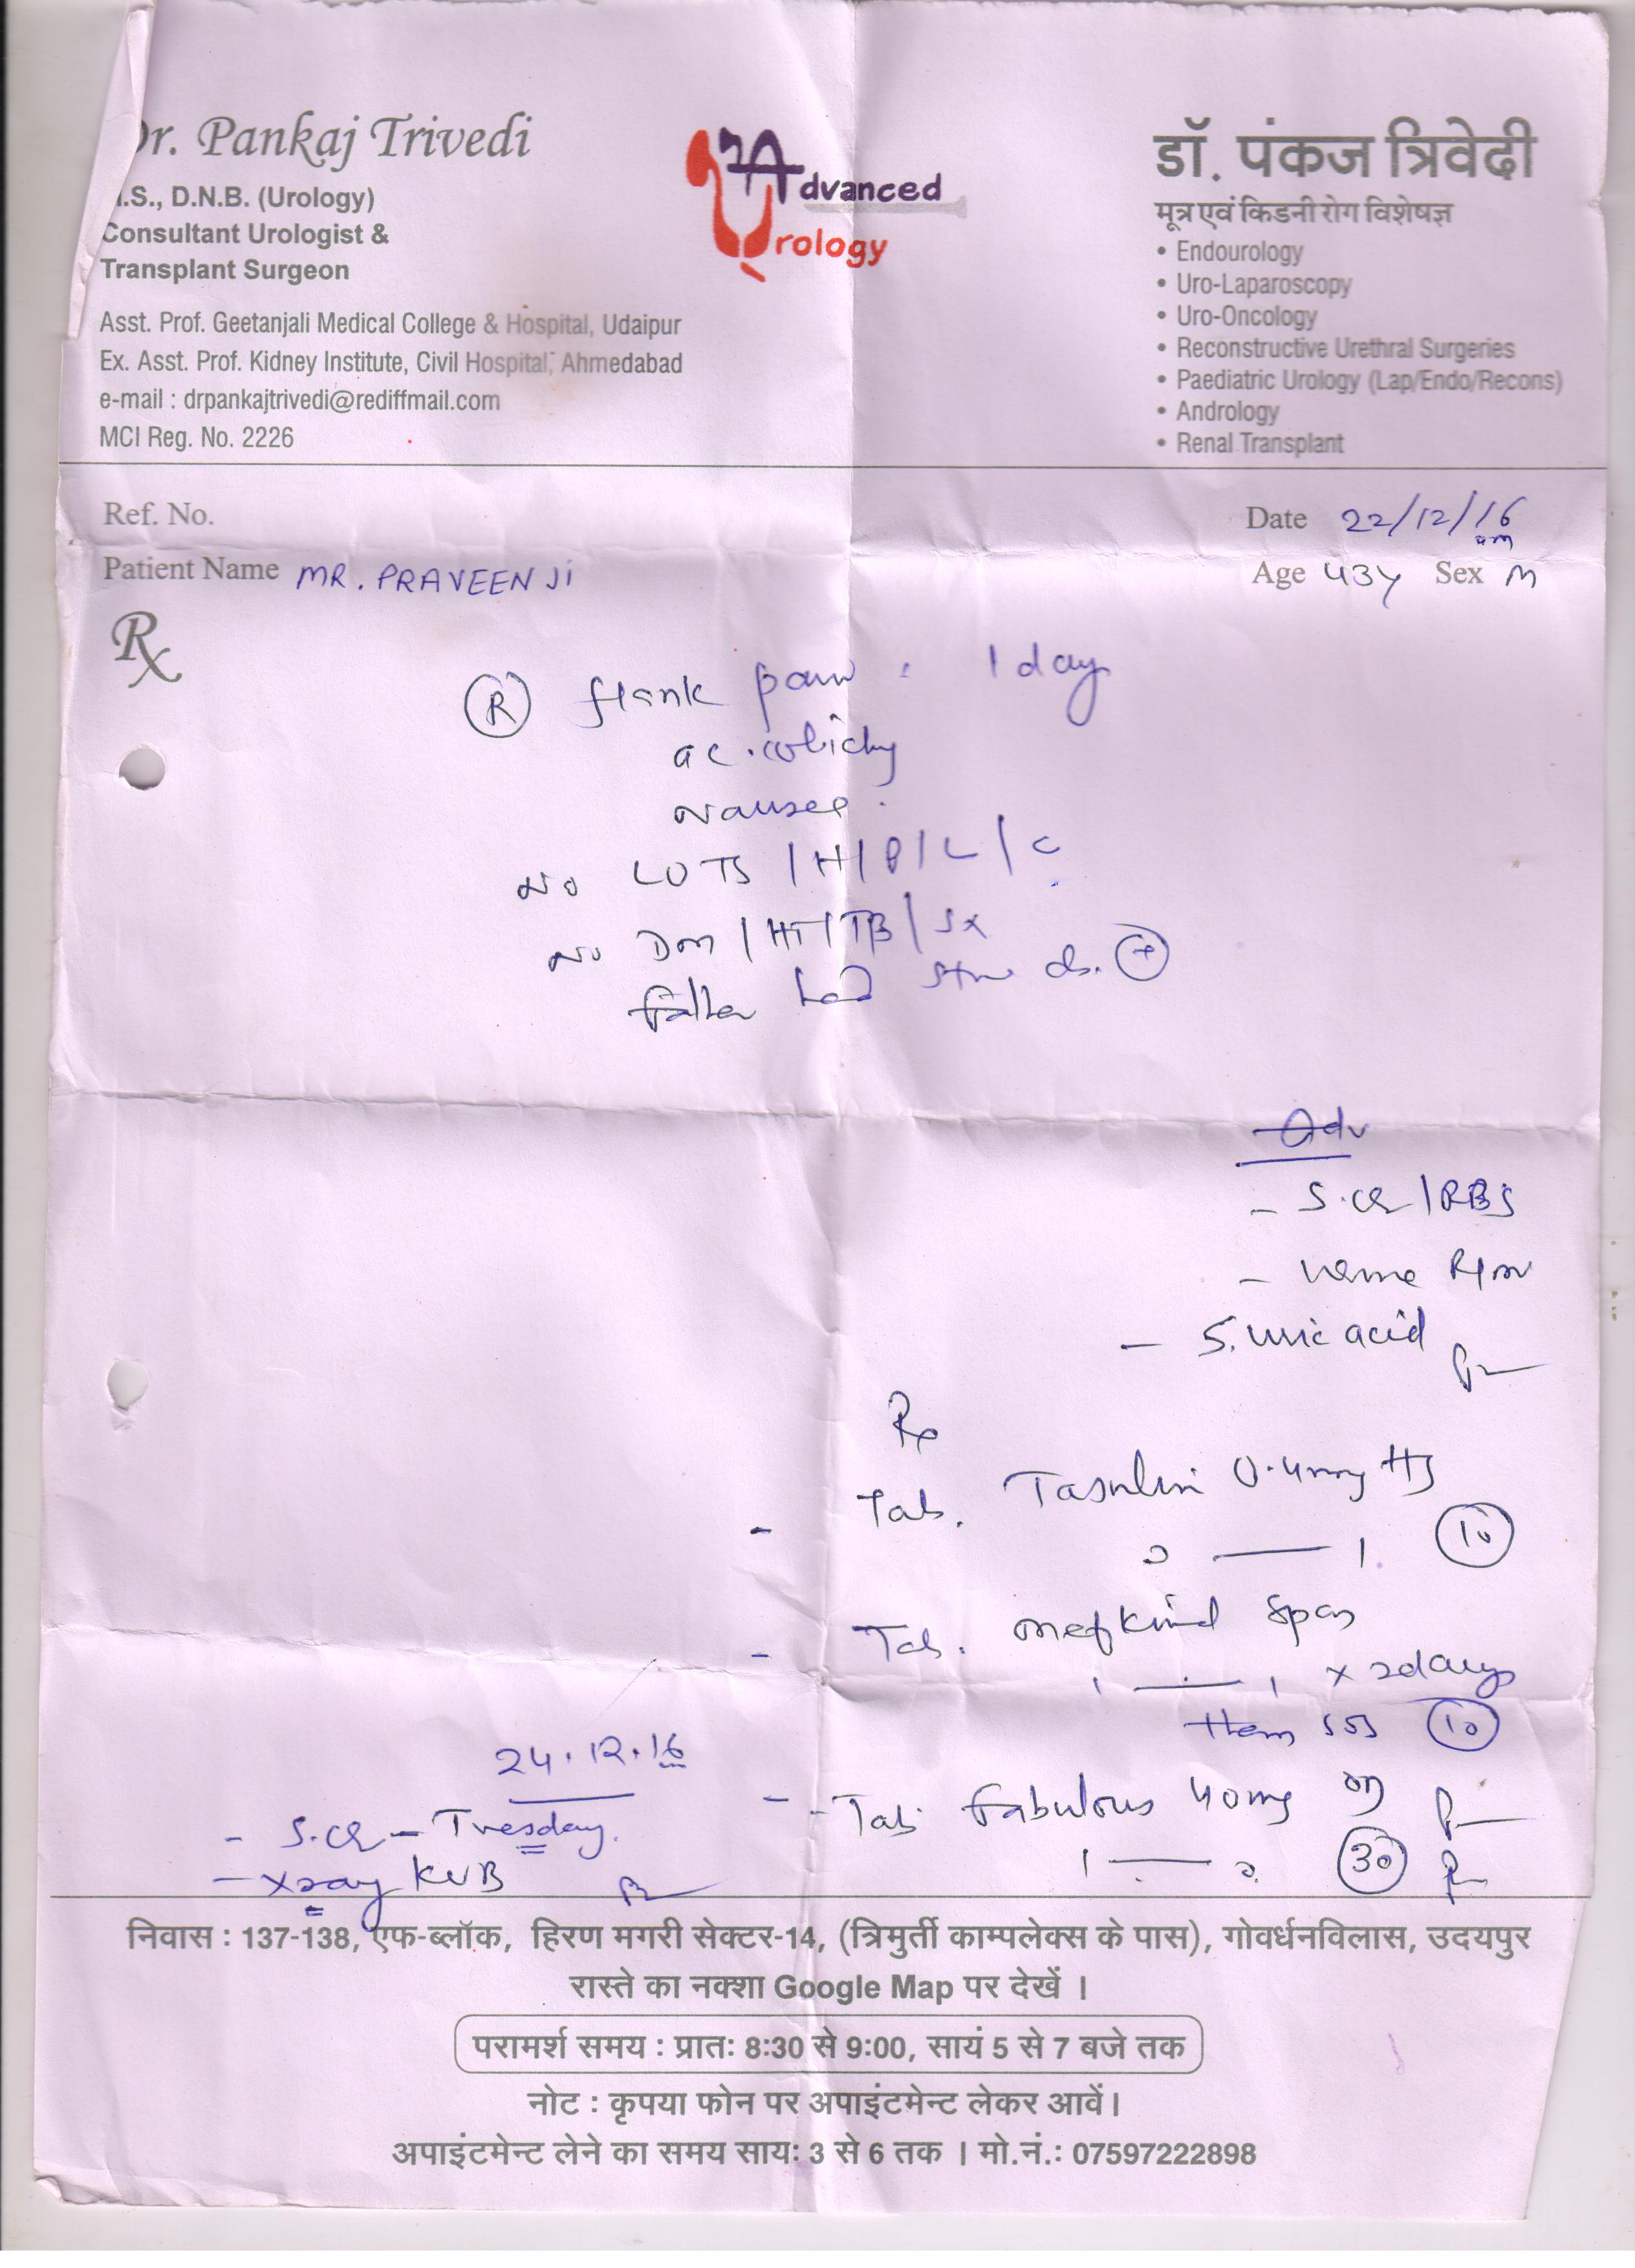 Dr. Pankaj Trivedi
.S., D.N.B. (Urology)
Consultant Urologist &
Transplant Surgeon
Asst. Prof. Geetanjali Medical College & Hospital, Udaipur
Ex. Asst. Prof. Kidney Institute, Civil Hospital, Ahmedabad
e-mail : drpankajtrivedi@rediffmail.com
MCI Reg. No. 2226
Advanced
Urology
डॉ. पंकज त्रिवेदी
मूत्र एवं किडनी रोग विशेषज्ञ
• Endourology
• Uro-Laparoscopy
• Uro-Oncology
• Reconstructive Urethral Surgeries
• Paediatric Urology (Lap/Endo/Recons)
• Andrology
• Renal Transplant
Ref. No.
Date 22/12/16
Patient Name MR. PRAVEEN Ji
Age 43y Sex M
Rx
(R) flank pain : 1 day
ac. colicky
nausea.
No LUTS /H/ /L/C
No DM /HT/TB/Sx
father had stone ds. (+)
Adv
- S.CR /RBS
- Urine
- S. uric acid
Rx
- Tab. Tasulin 0.4mg HS
0 — 1. (10)
- Tab. mefkind spas
1 — 1 x 2days
then SOS (10)
- Tab. fabulous 40mg OD
1 — 0. (30)
24.12.16
- S.CR - Tuesday.
- xray KUB
निवास : 137-138, एफ-ब्लॉक, हिरण मगरी सेक्टर-14, (त्रिमुर्ती काम्पलेक्स के पास), गोवर्धनविलास, उदयपुर
रास्ते का नक्शा Google Map पर देखें ।
परामर्श समय : प्रातः 8:30 से 9:00, सायं 5 से 7 बजे तक
नोट : कृपया फोन पर अपाइंटमेन्ट लेकर आवें।
अपाइंटमेन्ट लेने का समय सायः 3 से 6 तक । मो.नं.: 07597222898